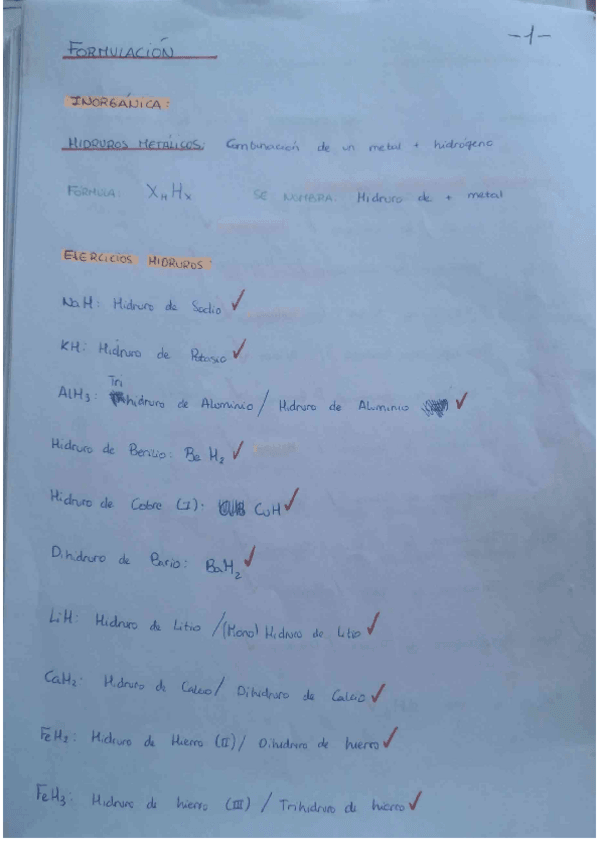 -1-
FORMULACIÓN
INORGÁNICA:
HIDRUROS METÁLICOS: Combinación de un metal + hidrógeno
FÓRMULA: XnHx SE NOMBRA: Hidruro de + metal
EJERCICIOS HIDRUROS:
NaH: Hidruro de Sodio ✓
KH: Hidruro de Potasio ✓
AlH3: Trihidruro de Aluminio / Hidruro de Aluminio ✓
Hidruro de Berilio: Be H2 ✓
Hidruro de Cobre (I): CuH ✓
Dihidruro de Bario: BaH2 ✓
LiH: Hidruro de Litio / (Mono) Hidruro de Litio ✓
CaH2: Hidruro de Calcio / Dihidruro de Calcio ✓
FeH2: Hidruro de Hierro (II) / Dihidruro de hierro ✓
FeH3: Hidruro de hierro (III) / Trihidruro de hierro ✓